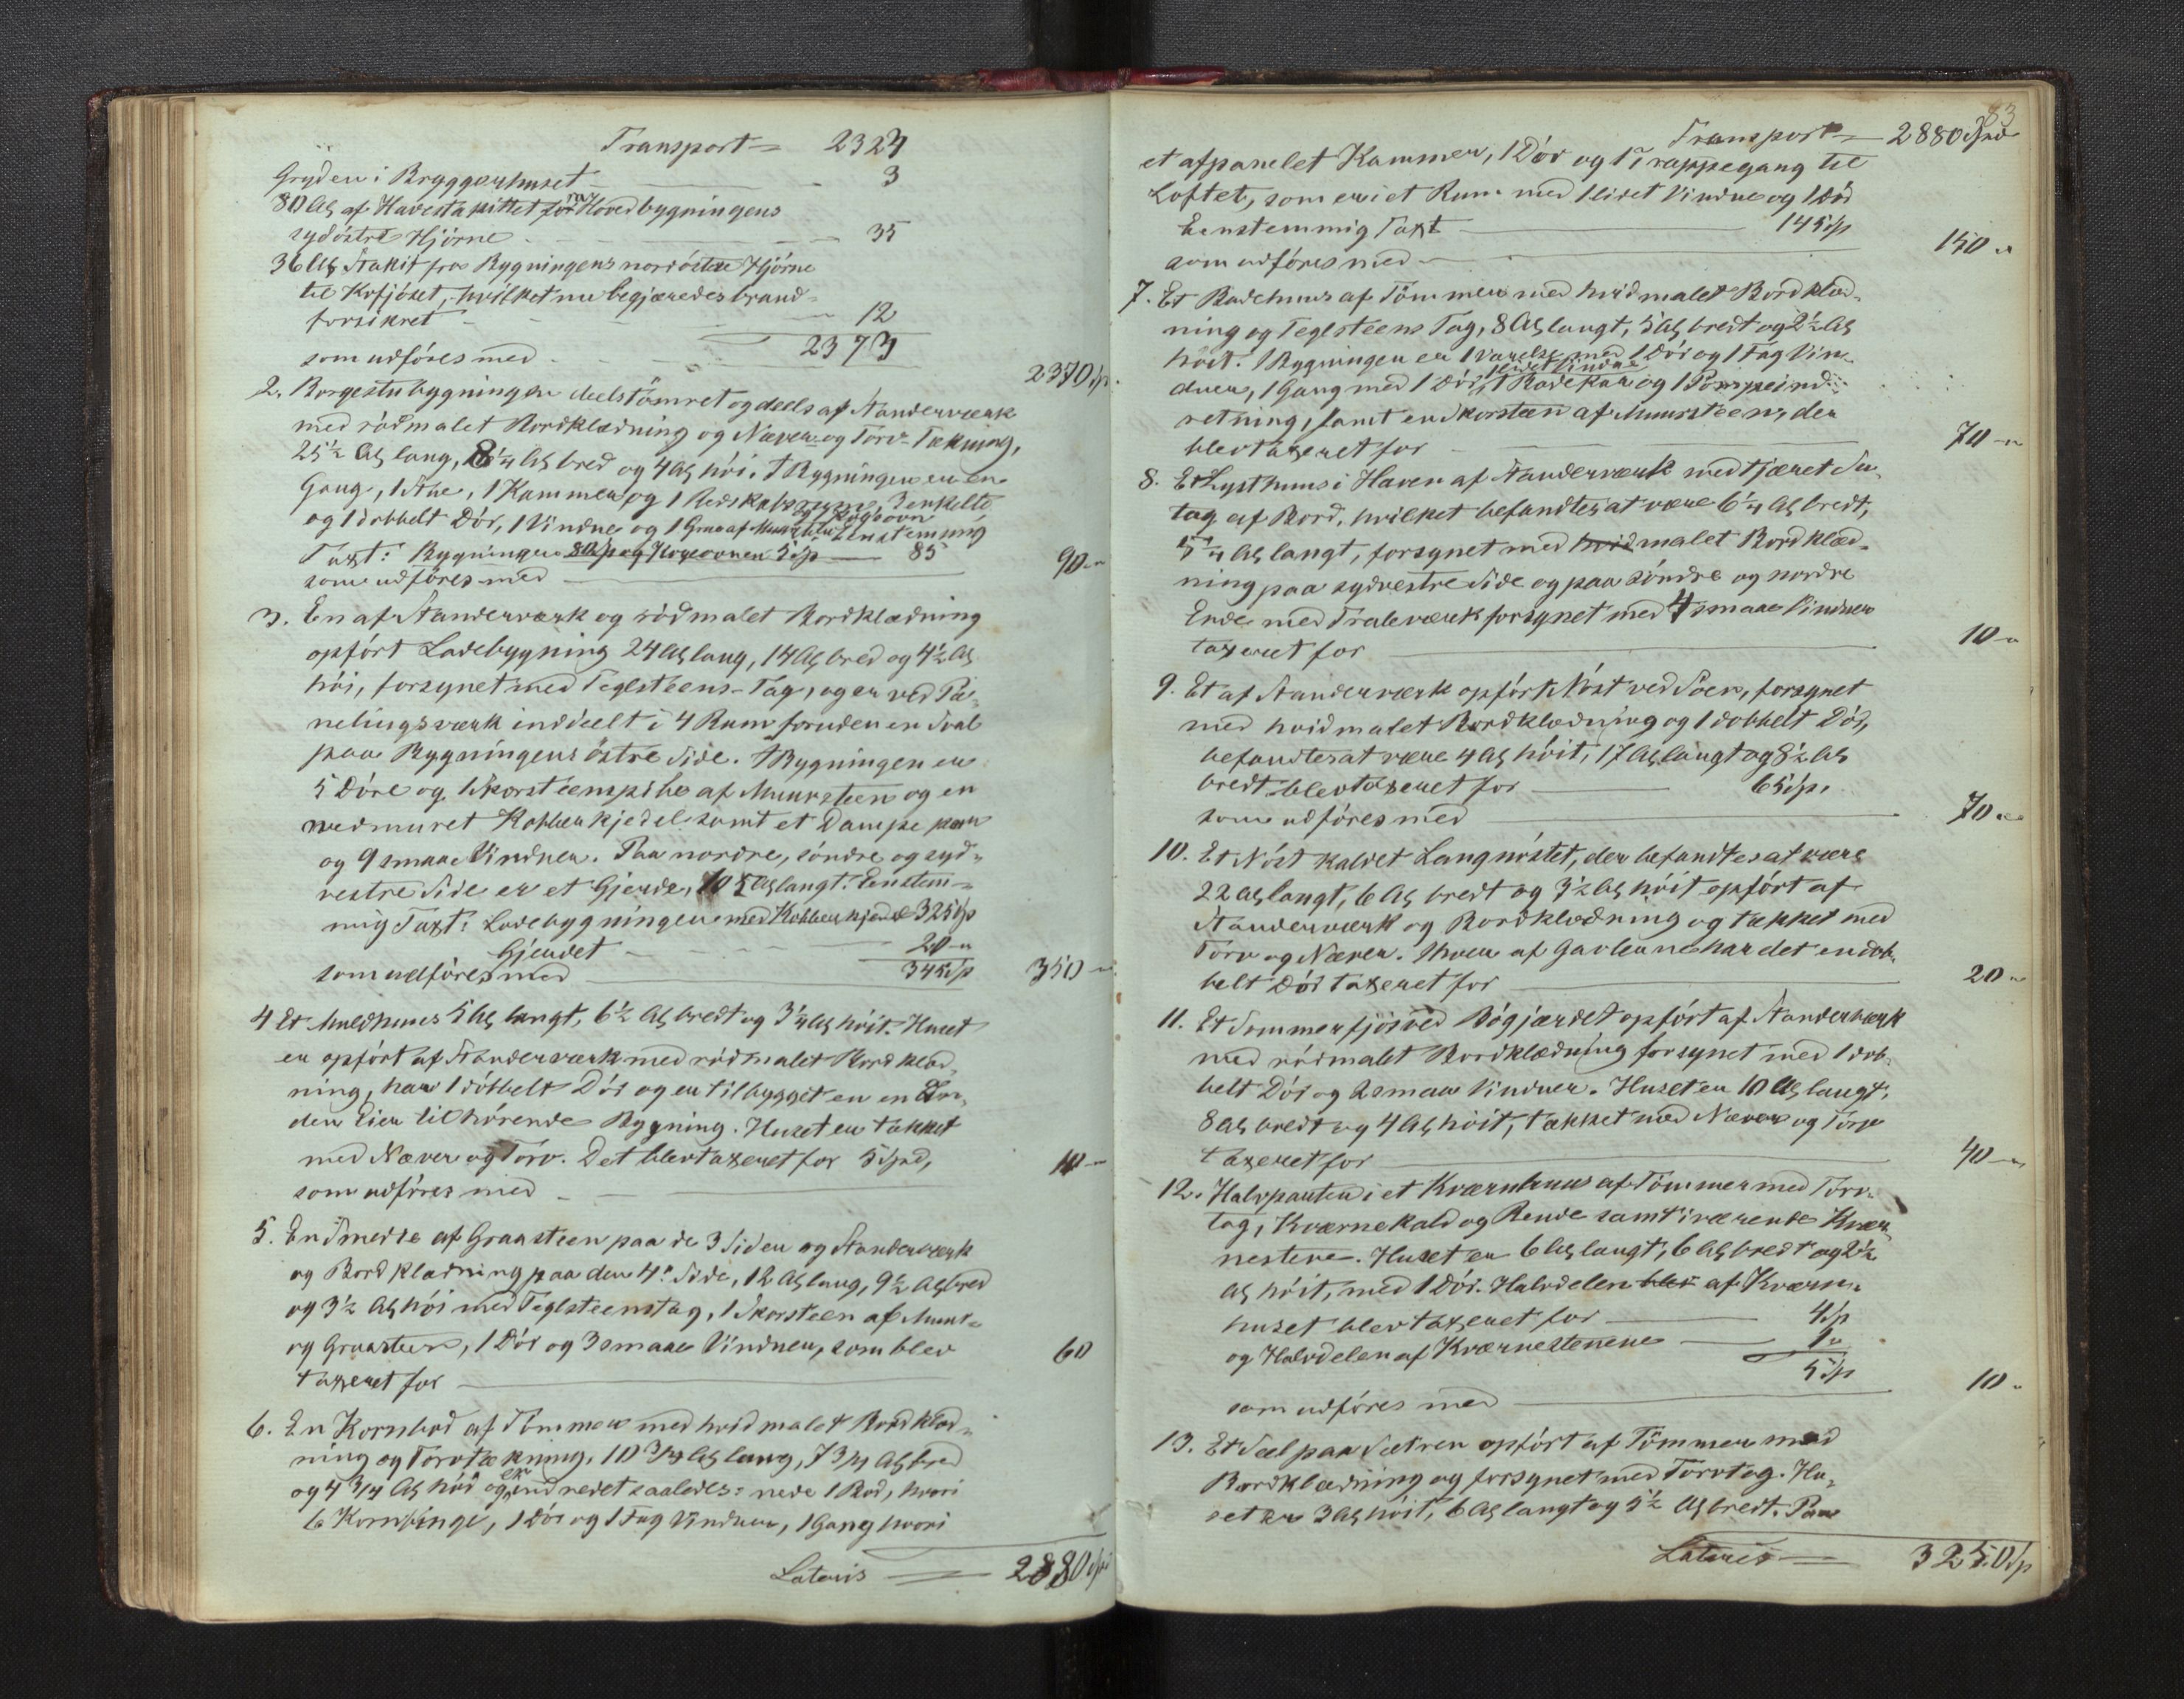 Transport = 2324
Gryden i Bryggerhuset 3
80 Al af Havestakittet fra Hovedbygningens
sydöstre Hjörne 35
36 Al Stakit fra Bygningens nordöstre Hjörne
til Kofjöset, hvilket nu begjæredes brand-
forsikret 12
2373
som udföres med 2370 Sp.
2. Borgestubygningen deels tömret og deels af Standerværk
med rödmalet Bordklædning og Næver og Törv-Tækning,
25½ Al lang, 8¼ Al bred og 4 Al höi. I Bygningen er en
Gang, 1 Stue, 1 Kammer og 1 Redskabsrum, 3 enkelte
og Kogeovn
og 1 dobbelt Dör, 1 Vindue og 1 Grue af Muursteen Eenstemmig
Taxt: Bygningen 80 Sp og Kogeovnen 5 Sp 85
som udföres med 90 "
3. En af Standerværk og rödmalet Bordklædning
opfört Ladebygning 24 Al lang, 14 Al bred og 4½ Al
höi, forsynet med Teglsteens-Tag, og er ved Pa-
nelingsværk inddeelt i 4 Rum foruden en Sval
paa Bygningens östre Side. I Bygningen er
5 Döre og 1 Skorsteenspibe af Muursteen og en
nedmuret Kobberkjedel samt et Dampe kar
og 9 smaae Vinduer. Paa nordre, söndre og syd-
vestre Side er et Gjerde, 105 Al langt. Eenstem-
mig Taxt: Ladebygningen med Kobberkjedel 325 Sp
Gjerdet 20 "
som udföres med 345 Sp 350 "
4 Et Muldhuus 5 Al langt, 6½ Al bredt og 3¼ Al höit. Huset
er opfört af Standerværk med rödmalet Bordklæd-
ning, har 1 dobbelt Dör og er tilbygget en en an-
den Eier tilhörende Bygning. Huset er tækket
med Næver og Törv. Det blev taxeret for 5 Spd,
som udföres med 10 "
5. En Smedie af Graasteen paa de 3 Sider og Standerværk
og Bordklædning paa den 4de Side, 12 Al lang, 9½ Al bred
og 3½ Al höi med Teglsteenstag, 1 Skorsteen af Muur-
og Graasteen, 1 Dör og 3 smaae Vinduer, som blev
taxeret for 60
6. En Kornbod af Tömmer med hvidmalet Bordklæd-
ning og Torvtækning, 10 3/4 Al lang, 7 3/4 Al bred
og 4 3/4 Al höi og er indredet saaledes: nede 1 Bod, hvori
6 Kornbinge, 1 Dör og 1 Fag Vinduer, 1 Gang hvori
Lateris = 2880 Sp
83
Transport = 2880 Spd
et afpanelet Kammer, 1 Dör og 1 Trappegang til
Loftet, som er i et Rum med 1 lidet Vindue og 1 Dör
Eenstemmig Taxt 145 Sp
som udföres med 150 "
7. Et Badehuus af Tömmer med hvidmalet Bordklæd-
ning og Teglsteens Tag, 8 Al langt, 5 Al bredt og 2½ Al
höit. I Bygningen er 1 Værelse med 1 Dör og 1 Fag Vin-
1 lidet Vindue
duer, 1 Gang med 1 Dör, 1 Badekar og 1 Pompeind-
retning, samt en Skorsteen af Muursteen, der
blev taxeret for 70 "
8. Et Lysthuus i Haven af Standerværk med tjæret Su-
tag af Bord, hvilket befandtes at være 6¼ Al bredt,
5¼ Al langt, forsynet med hvidmalet Bordklæd-
ning paa sydvestre Side og paa söndre og nordre
Ende med Traleværk forsynet med 4 smaae Vinduer
taxeret for 10 "
9. Et af Standerværk opfört Nöst ved Söen, forsynet
med hvidmalet Bordklædning og 1 dobbelt Dör,
befandtes at være 4 Al höit, 17 Al langt og 8½ Al
bredt blev taxeret for 65 Sp.
som udföres med 70 "
10. Et Nöst kaldet Langnöstet, der befandtes at være
22 Al langt, 6 Al bredt og 3½ Al höit opfört af
Standerværk og Bordklædning og tækket med
Törv og Næver. I hver af Gavlerne har det en dob-
belt Dör taxeret for 20 "
11. Et Sommerfjös ved Bögjærdet opfört af Standerværk
med rödmalet Bordklædning forsynet med 1 dob-
belt Dör og 2 smaae Vinduer. Huset er 10 Al langt,
8 Al bredt og 4 Al höit, tækket med Næver og Törv
taxeret for 40 "
12. Halvparten i et Kværnhuus af Tömmer med Törv-
tag, Kværnekald og Rende samt iværende Kvær-
nestene. Huset er 6 Al langt, 6 Al bredt og 2½
Al höit, med 1 Dör. Halvdelen blev af Kværn-
huset blev taxeret for 4 Sp
og Halvdelen af Kværnestenene 1 "
5 Sp
som udföres med 10 "
13. Et Sæl paa Sætren opfört af Tömmer med
Bordklædning og forsynet med Torvtag. Hu-
set er 3 Al höit, 6 Al langt og 5½ Al bredt. Paa
Lateris = 3250 Sp